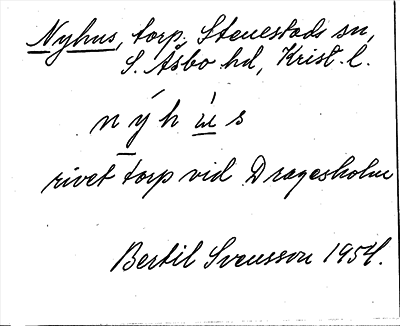 Nyhus, torp. Stenestads sn,
S. Åsbo hd, Krist. l.
n ý h ù s
rivet torp vid Dragesholm
Bertil Svensson 1954.